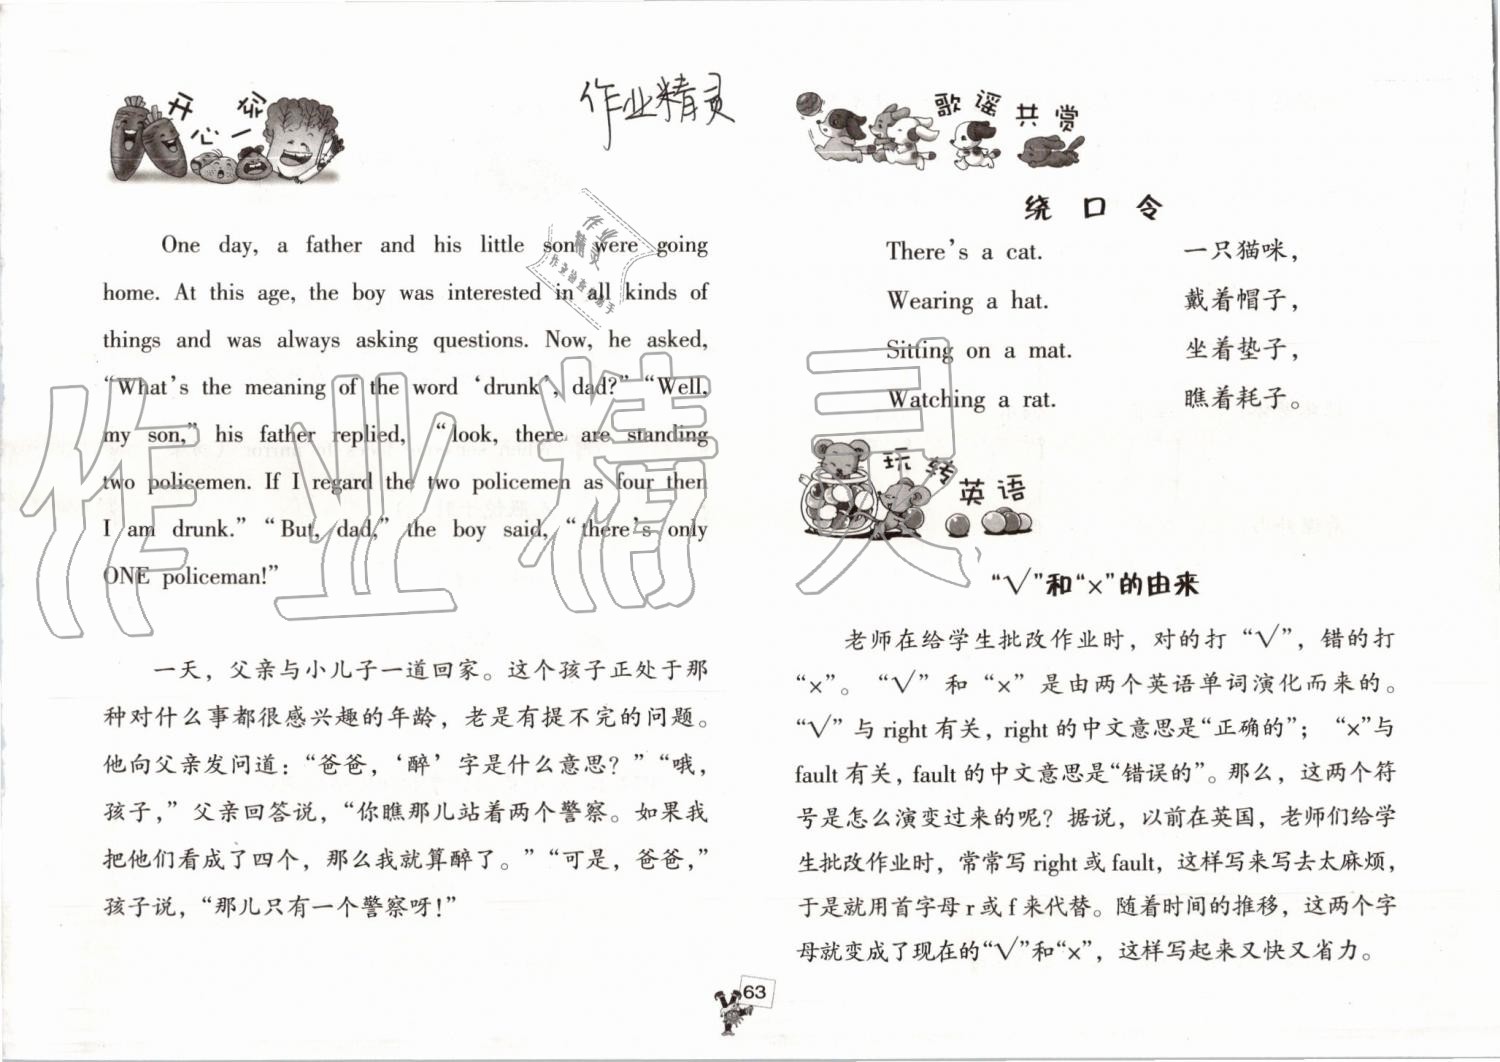 开心一刻
作业精灵
One day, a father and his little son were going
home. At this age, the boy was interested in all kinds of
things and was always asking questions. Now, he asked,
“What’s the meaning of the word ‘drunk’, dad?” “Well,
my son,” his father replied, “look, there are standing
two policemen. If I regard the two policemen as four then
I am drunk.” “But, dad,” the boy said, “there’s only
ONE policeman!”
一天，父亲与小儿子一道回家。这个孩子正处于那
种对什么事都很感兴趣的年龄，老是有提不完的问题。
他向父亲发问道：“爸爸，‘醉’字是什么意思？”“哦，
孩子，”父亲回答说，“你瞧那儿站着两个警察。如果我
把他们看成了四个，那么我就算醉了。”“可是，爸爸，”
孩子说，“那儿只有一个警察呀！”
歌谣共赏
绕口令
There’s a cat. 一只猫咪，
Wearing a hat. 戴着帽子，
Sitting on a mat. 坐着垫子，
Watching a rat. 瞧着耗子。
玩转英语
“√”和“×”的由来
老师在给学生批改作业时，对的打“√”，错的打
“×”。“√”和“×”是由两个英语单词演化而来的。
“√”与 right 有关，right 的中文意思是“正确的”；“×”与
fault 有关，fault 的中文意思是“错误的”。那么，这两个符
号是怎么演变过来的呢？据说，以前在英国，老师们给学
生批改作业时，常常写 right 或 fault，这样写来写去太麻烦，
于是就用首字母 r 或 f 来代替。随着时间的推移，这两个字
母就变成了现在的“√”和“×”，这样写起来又快又省力。
63
作业精灵
作业精灵